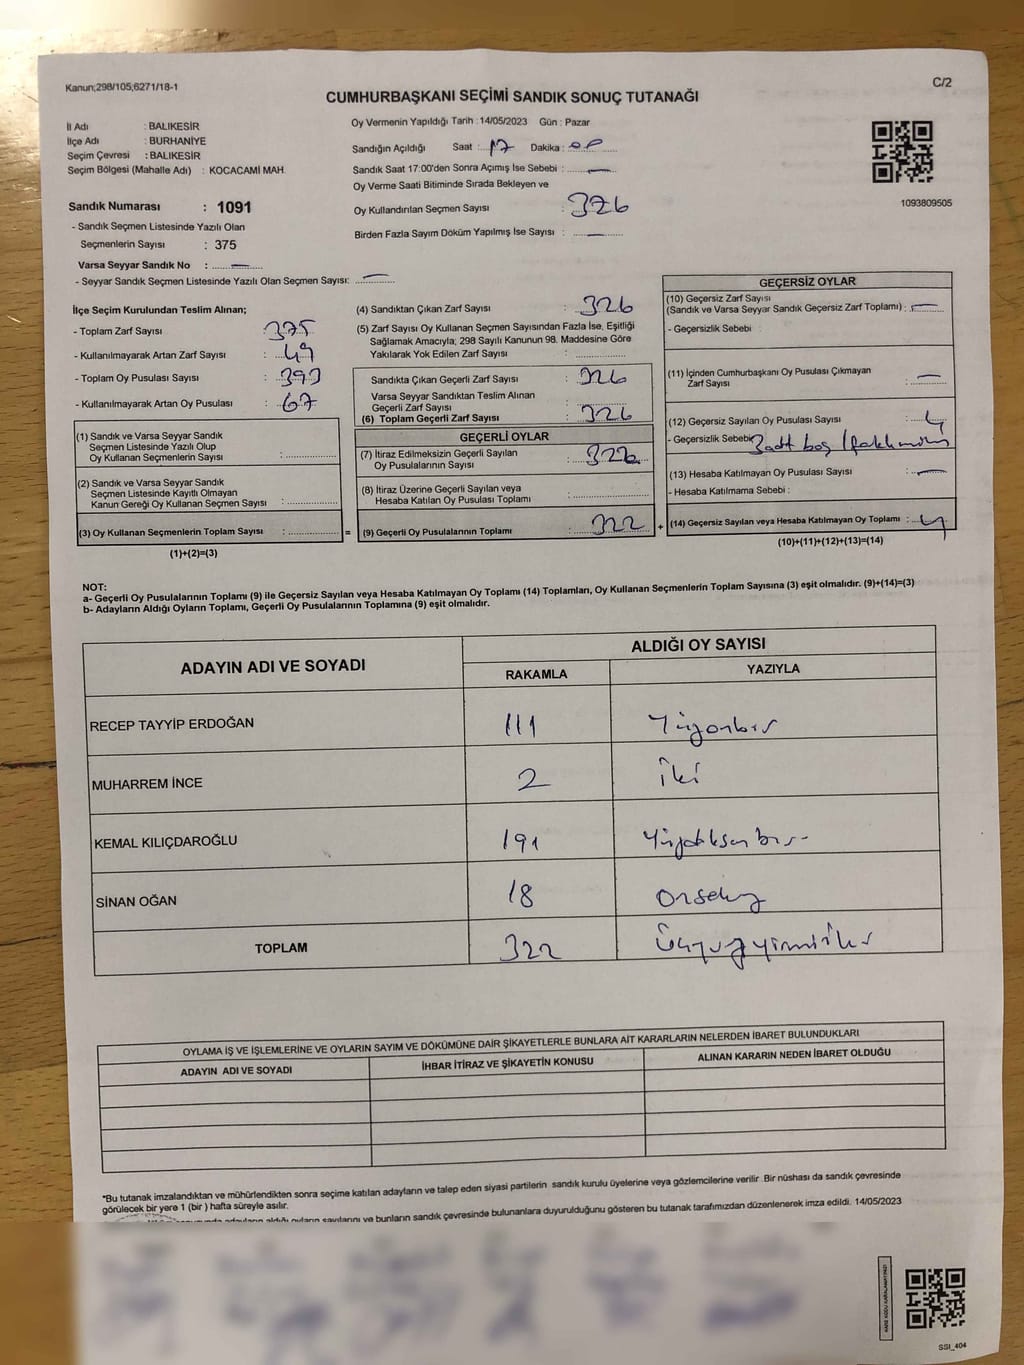 Kanun;298/105;6271/18-1
C/2
CUMHURBAŞKANI SEÇİMİ SANDIK SONUÇ TUTANAĞI
İl Adı : BALIKESİR
İlçe Adı : BURHANİYE
Seçim Çevresi : BALIKESİR
Seçim Bölgesi (Mahalle Adı) : KOCACAMİ MAH.
Oy Vermenin Yapıldığı Tarih :14/05/2023 Gün : Pazar
Sandığın Açıldığı Saat : 17 Dakika : 00
Sandık Saat 17:00'den Sonra Açımış İse Sebebi : —
Oy Verme Saati Bitiminde Sırada Bekleyen ve
Oy Kullandırılan Seçmen Sayısı : 326
Birden Fazla Sayım Döküm Yapılmış İse Sayısı : —
1093809505
Sandık Numarası : 1091
- Sandık Seçmen Listesinde Yazılı Olan
Seçmenlerin Sayısı : 375
Varsa Seyyar Sandık No : —
- Seyyar Sandık Seçmen Listesinde Yazılı Olan Seçmen Sayısı: —
İlçe Seçim Kurulundan Teslim Alınan;
- Toplam Zarf Sayısı : 375
- Kullanılmayarak Artan Zarf Sayısı : 49
- Toplam Oy Pusulası Sayısı : 393
- Kullanılmayarak Artan Oy Pusulası : 67
(1) Sandık ve Varsa Seyyar Sandık
Seçmen Listesinde Yazılı Olup
Oy Kullanan Seçmenlerin Sayısı :
(2) Sandık ve Varsa Seyyar Sandık
Seçmen Listesinde Kayıtlı Olmayan
Kanun Gereği Oy Kullanan Seçmen Sayısı :
(3) Oy Kullanan Seçmenlerin Toplam Sayısı : =
(1)+(2)=(3)
(4) Sandıktan Çıkan Zarf Sayısı : 326
(5) Zarf Sayısı Oy Kullanan Seçmen Sayısından Fazla İse, Eşitliği
Sağlamak Amacıyla; 298 Sayılı Kanunun 98. Maddesine Göre
Yakılarak Yok Edilen Zarf Sayısı :
Sandıkta Çıkan Geçerli Zarf Sayısı : 326
Varsa Seyyar Sandıktan Teslim Alınan
Geçerli Zarf Sayısı :
(6) Toplam Geçerli Zarf Sayısı : 326
GEÇERLİ OYLAR
(7) İtiraz Edilmeksizin Geçerli Sayılan
Oy Pusulalarının Sayısı : 322
(8) İtiraz Üzerine Geçerli Sayılan veya
Hesaba Katılan Oy Pusulası Toplamı :
(9) Geçerli Oy Pusulalarının Toplamı : 322 +
GEÇERSİZ OYLAR
(10) Geçersiz Zarf Sayısı
(Sandık ve Varsa Seyyar Sandık Geçersiz Zarf Toplamı) : —
- Geçersizlik Sebebi :
(11) İçinden Cumhurbaşkanı Oy Pusulası Çıkmayan
Zarf Sayısı : —
(12) Geçersiz Sayılan Oy Pusulası Sayısı : 4
- Geçersizlik Sebebi boş
(13) Hesaba Katılmayan Oy Pusulası Sayısı : —
- Hesaba Katılmama Sebebi :
(14) Geçersiz Sayılan veya Hesaba Katılmayan Oy Toplamı : 4
(10)+(11)+(12)+(13)=(14)
NOT:
a- Geçerli Oy Pusulalarının Toplamı (9) ile Geçersiz Sayılan veya Hesaba Katılmayan Oy Toplamı (14) Toplamları, Oy Kullanan Seçmenlerin Toplam Sayısına (3) eşit olmalıdır. (9)+(14)=(3)
b- Adayların Aldığı Oyların Toplamı, Geçerli Oy Pusulalarının Toplamına (9) eşit olmalıdır.
ADAYIN ADI VE SOYADI
ALDIĞI OY SAYISI
RAKAMLA
YAZIYLA
RECEP TAYYİP ERDOĞAN 111 Yüzonbir
MUHARREM İNCE 2 iki
KEMAL KILIÇDAROĞLU 191 Yüzdoksanbir
SİNAN OĞAN 18 Onsekiz
TOPLAM 322 Üçyüzyirmiiki
OYLAMA İŞ VE İŞLEMLERİNE VE OYLARIN SAYIM VE DÖKÜMÜNE DAİR ŞİKAYETLERLE BUNLARA AİT KARARLARIN NELERDEN İBARET BULUNDUKLARI
ADAYIN ADI VE SOYADI
İHBAR İTİRAZ VE ŞİKAYETİN KONUSU
ALINAN KARARIN NEDEN İBARET OLDUĞU
*Bu tutanak imzalandıktan ve mühürlendikten sonra seçime katılan adayların ve talep eden siyasi partilerin sandık kurulu üyelerine veya gözlemcilerine verilir. Bir nüshası da sandık çevresinde
görülecek bir yere 1 (bir ) hafta süreyle asılır.
adayların aldığı oyların sayılarını ve bunların sandık çevresinde bulunanlara duyurulduğunu gösteren bu tutanak tarafımızdan düzenlenerek imza edildi. 14/05/2023
SSI_404